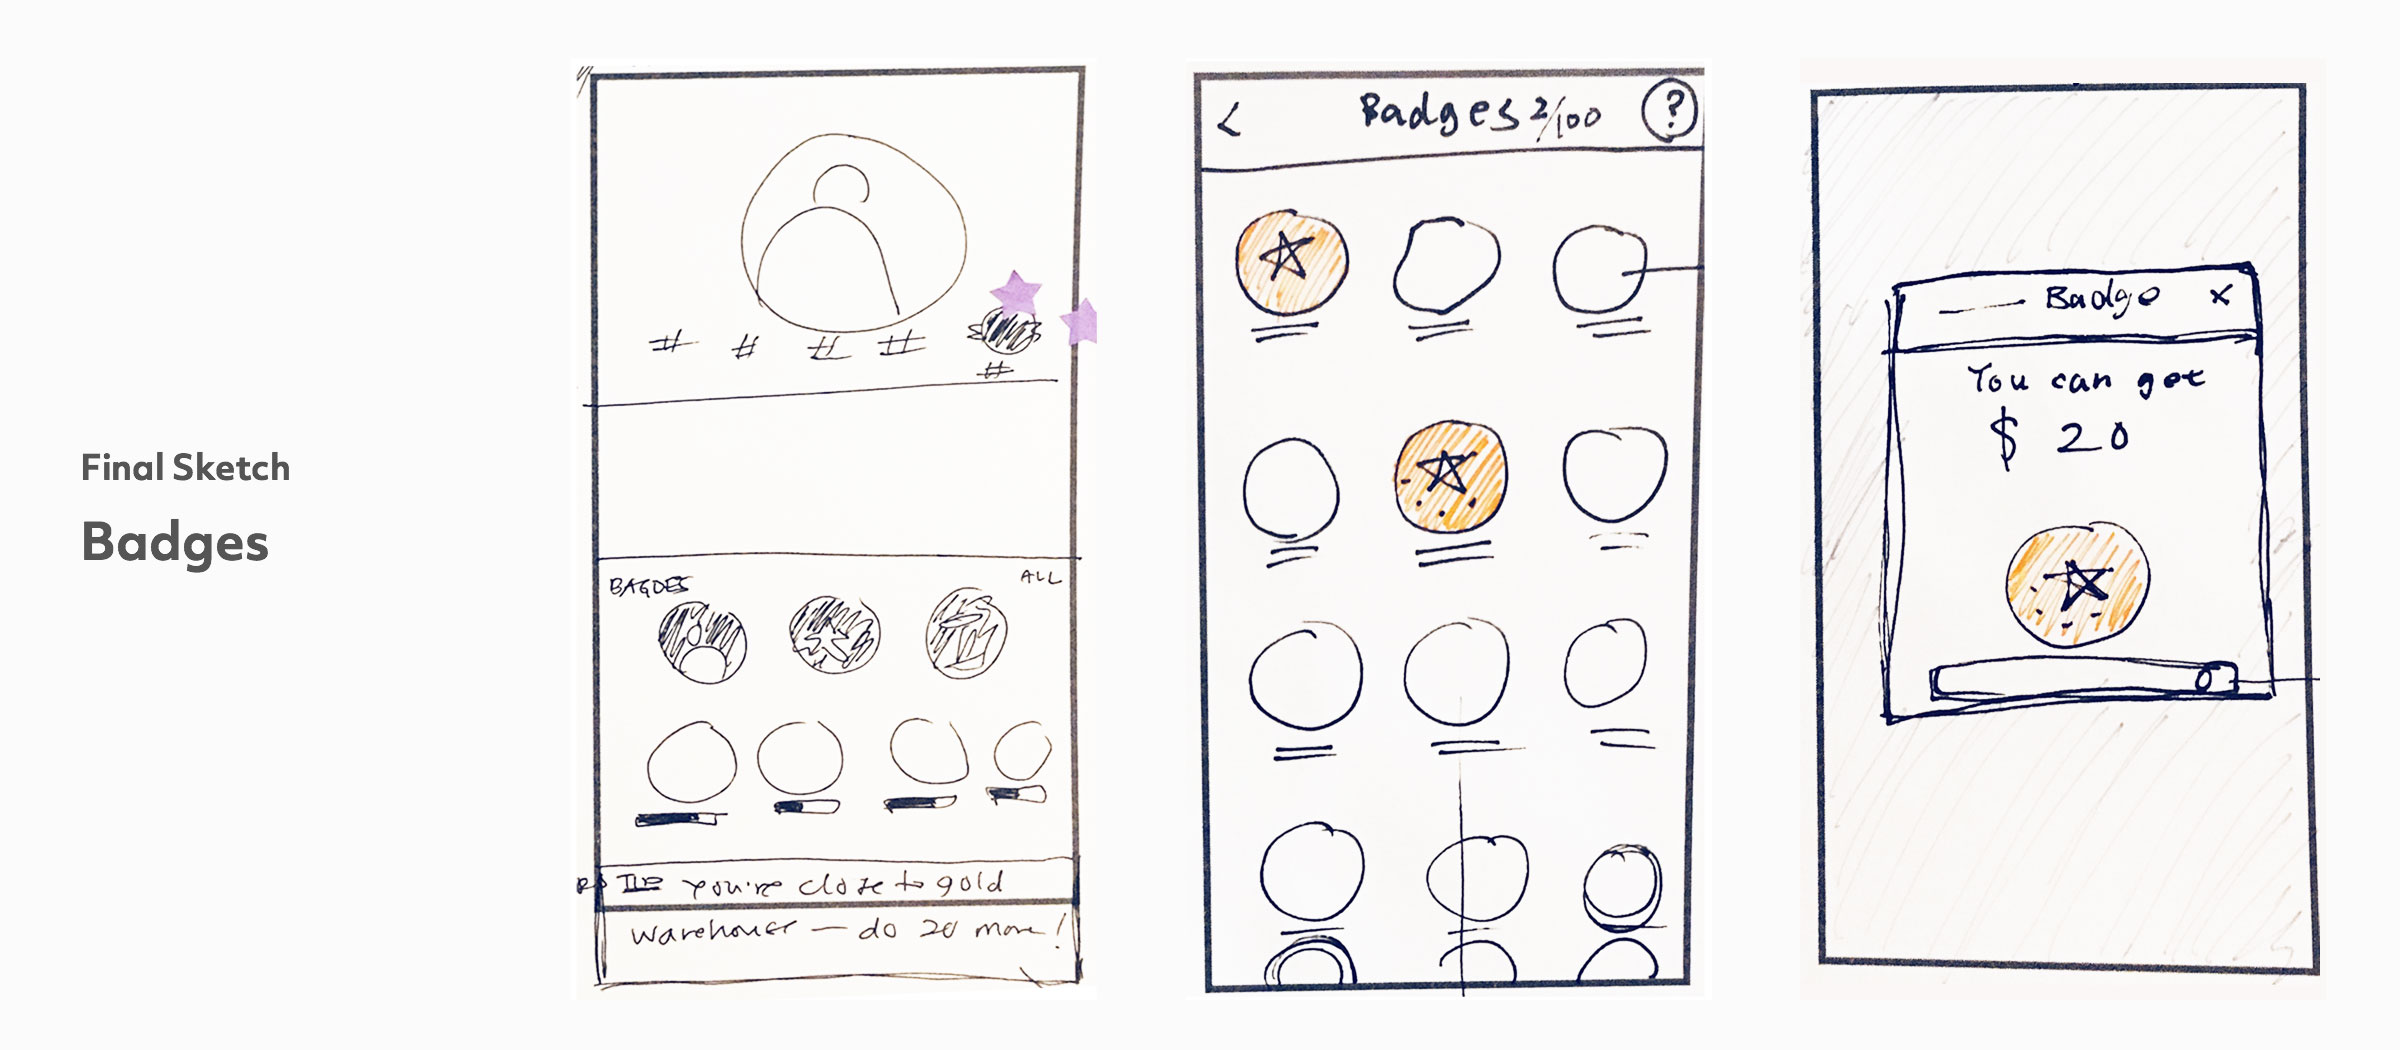 Final Sketch
Badges
# # # #
#
BAGDES ALL
you're close to gold
warehouse — do 20 more!
< Badges 2/100 ?
Badge x
You can get
$ 20